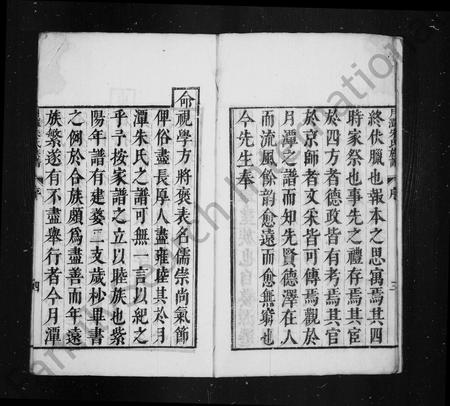 終伏臘也報本之思寓焉其四
時家祭也事先之禮存焉其宦
於四方者德政皆有考焉其官
於京師者文采皆可傳焉觀於
月潭之譜而知先賢德澤在人
而流風餘韵愈遠而愈無窮也
今先生奉
命視學方將褒表名儒崇尚氣節
俾俗盡長厚人盡雍睦其於月
潭朱氏之譜可無一言以紀之
乎予按家譜之立以睦族也紫
陽年譜有建婺二支歲杪畢書
之例於合族頗為盡善而年遠
族繁遂有不盡舉行者今月潭
序
三
序
四